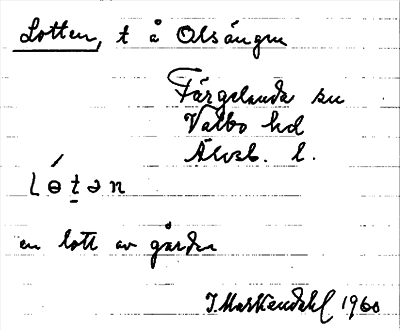 Lotten, t å Olsängen
Färgelanda sn
Valbo hd
Älvsb. l.
Lɵ́t̠ən
en lott av gården
J. Markendahl 1960